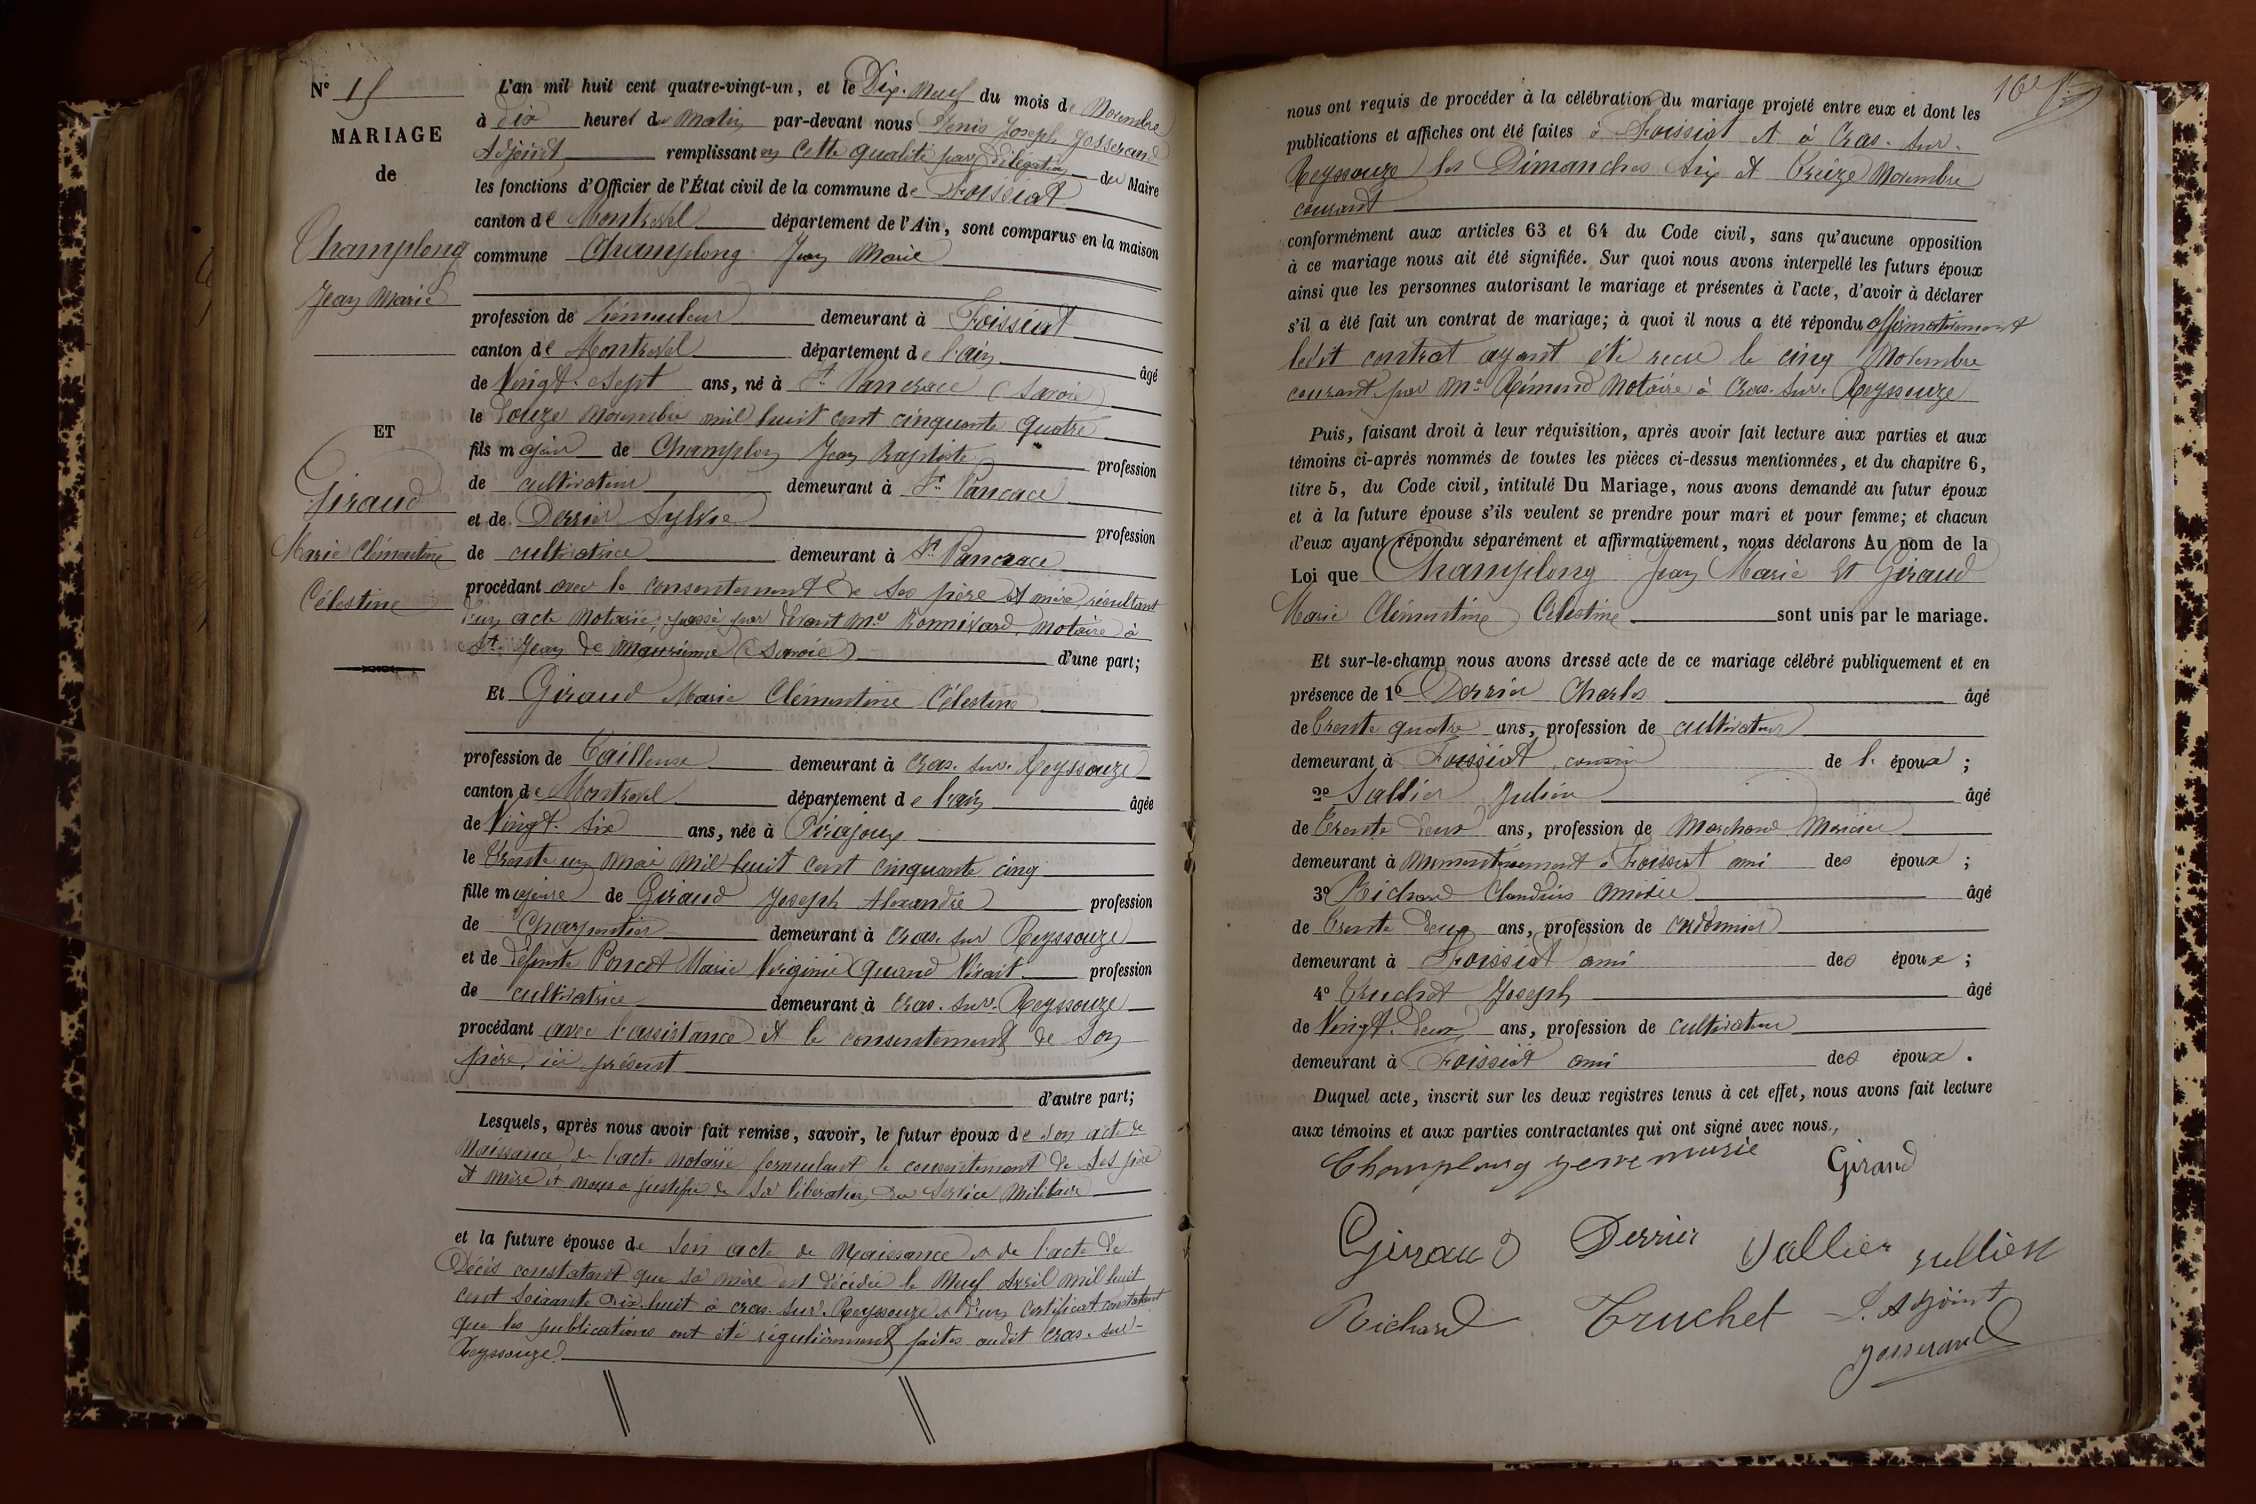 N° 15
MARIAGE
de
Champlong
Jean Marie
ET
Giraud
Marie Clémentine
Célestine
L'an mil huit cent quatre-vingt-un, et le Dix-Neuf du mois de Novembre
à dix heures du Matin par-devant nous Denis Joseph Josserand
Adjoint remplissant en cette qualité par délégation du Maire
les fonctions d'Officier de l'État civil de la commune de Foissiat
canton de Montrevel département de l'Ain, sont comparus en la maison
commune Champlong Jean Marie
profession de Rémouleur demeurant à Foissiat
canton de Montrevel département de l'ain âgé
de Vingt-Sept ans, né à St Pancrace (Savoie)
le Douze Novembre mil huit cent cinquante quatre
fils majeur de Champlong Jean Baptiste profession
de cultivateur demeurant à St Pancrace
et de Derrier Sylvie profession
de cultivatrice demeurant à St Pancrace
procédant avec le consentement de Ses père et mère, résultant
d'un acte Notarié, passé par devant Me Bonnivard, Notaire à
St Jean de Maurienne (Savoie) d'une part;
Et Giraud Marie Clémentine Célestine
profession de Tailleuse demeurant à Cras-sur-Reyssouze
canton de Montrevel département de l'ain âgée
de Vingt-Six ans, née à Pirajoux
le Trente un Mai Mil huit cent cinquante cinq
fille majeure de Giraud Joseph Alexandre profession
de Charpentier demeurant à Cras-sur Reyssouze
et de défunte Poncet Marie Virginie quand Vivait profession
de cultivatrice demeurant à Cras-sur-Reyssouze
procédant avec l'assistance et le consentement de Son
père, ici présent
d'autre part;
Lesquels, après nous avoir fait remise, savoir, le futur époux de Son acte de
Naissance, de l'acte notarié formulant le consentement de Ses père
et mère et nous a justifié de Sa libération du Service Militaire
et la future épouse de Son acte de Naissance & de l'acte de
Décès constatant que Sa mère est décédée le Neuf Avril mil huit
cent Soixante dix-huit à Cras-sur-Reyssouze & d'un certificat constatant
que les publications ont été régulièrement faites audit Cras-sur-
Reyssouze.
nous ont requis de procéder à la célébration du mariage projeté entre eux et dont les
publications et affiches ont été faites à Foissiat et à Cras-sur-
Reyssouze les Dimanches Six et Treize Novembre
courant
conformément aux articles 63 et 64 du Code civil, sans qu'aucune opposition
à ce mariage nous ait été signifiée. Sur quoi nous avons interpellé les futurs époux
ainsi que les personnes autorisant le mariage et présentes à l'acte, d'avoir à déclarer
s'il a été fait un contrat de mariage; à quoi il nous a été répondu affirmativement
ledit contrat ayant été recu le cinq Novembre
courant par Me Rémond Notaire à Cras-sur-Reyssouze
Puis, faisant droit à leur réquisition, après avoir fait lecture aux parties et aux
témoins ci-après nommés de toutes les pièces ci-dessus mentionnées, et du chapitre 6,
titre 5, du Code civil, intitulé Du Mariage, nous avons demandé au futur époux
et à la future épouse s'ils veulent se prendre pour mari et pour femme; et chacun
d'eux ayant répondu séparément et affirmativement, nous déclarons Au nom de la
Loi que Champlong Jean Marie Et Giraud
Marie Clémentine Célestine sont unis par le mariage.
Et sur-le-champ nous avons dressé acte de ce mariage célébré publiquement et en
présence de 1° Derrier Charles âgé
de Trente quatre ans, profession de cultivateur
demeurant à Foissiat, cousin de l' époux;
2° Sallier Julien âgé
de Trente deux ans, profession de Marchand Mercier
demeurant à Momentanément à Foissiat ami des époux;
3° Richard Claudius Amédée âgé
de Trente deux ans, profession de cordonnier
demeurant à Foissiat ami des époux;
4° Truchet Joseph âgé
de Vingt-deux ans, profession de cultivateur
demeurant à Foissiat ami des époux.
Duquel acte, inscrit sur les deux registres tenus à cet effet, nous avons fait lecture
aux témoins et aux parties contractantes qui ont signé avec nous.
Champlong Giraud
Giraud Derrier Vallier Jullien
Richard Truchet L'Adjoint
Josserand